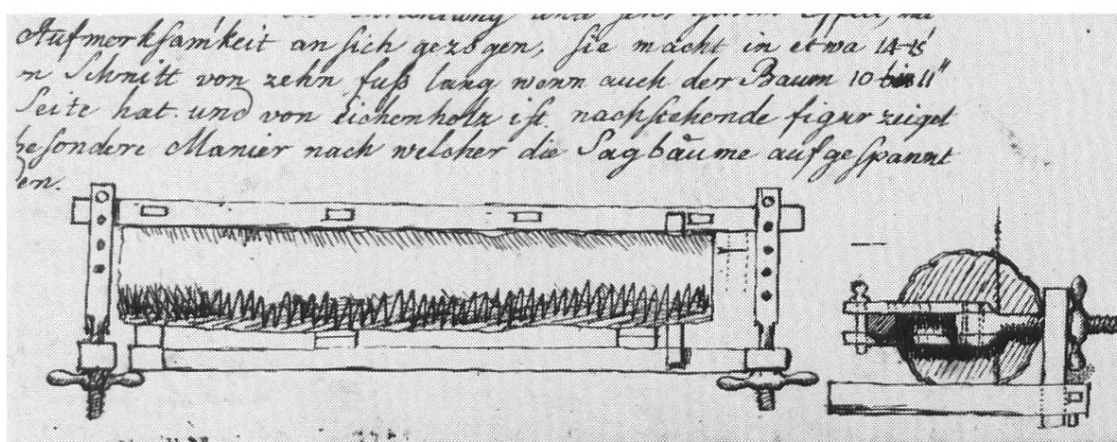 und sehr guten Effect, die
Aufmerksamkeit an sich gezogen, sie macht in etwa 14-15'
n Schnitt von zehn fuß lang wenn auch der Baum 10 bis 11"
Seite hat. und von Eichenholz ist. nachstehende figur zeiget
besondere Manier nach welcher die Sagbäume aufgespannt
den.